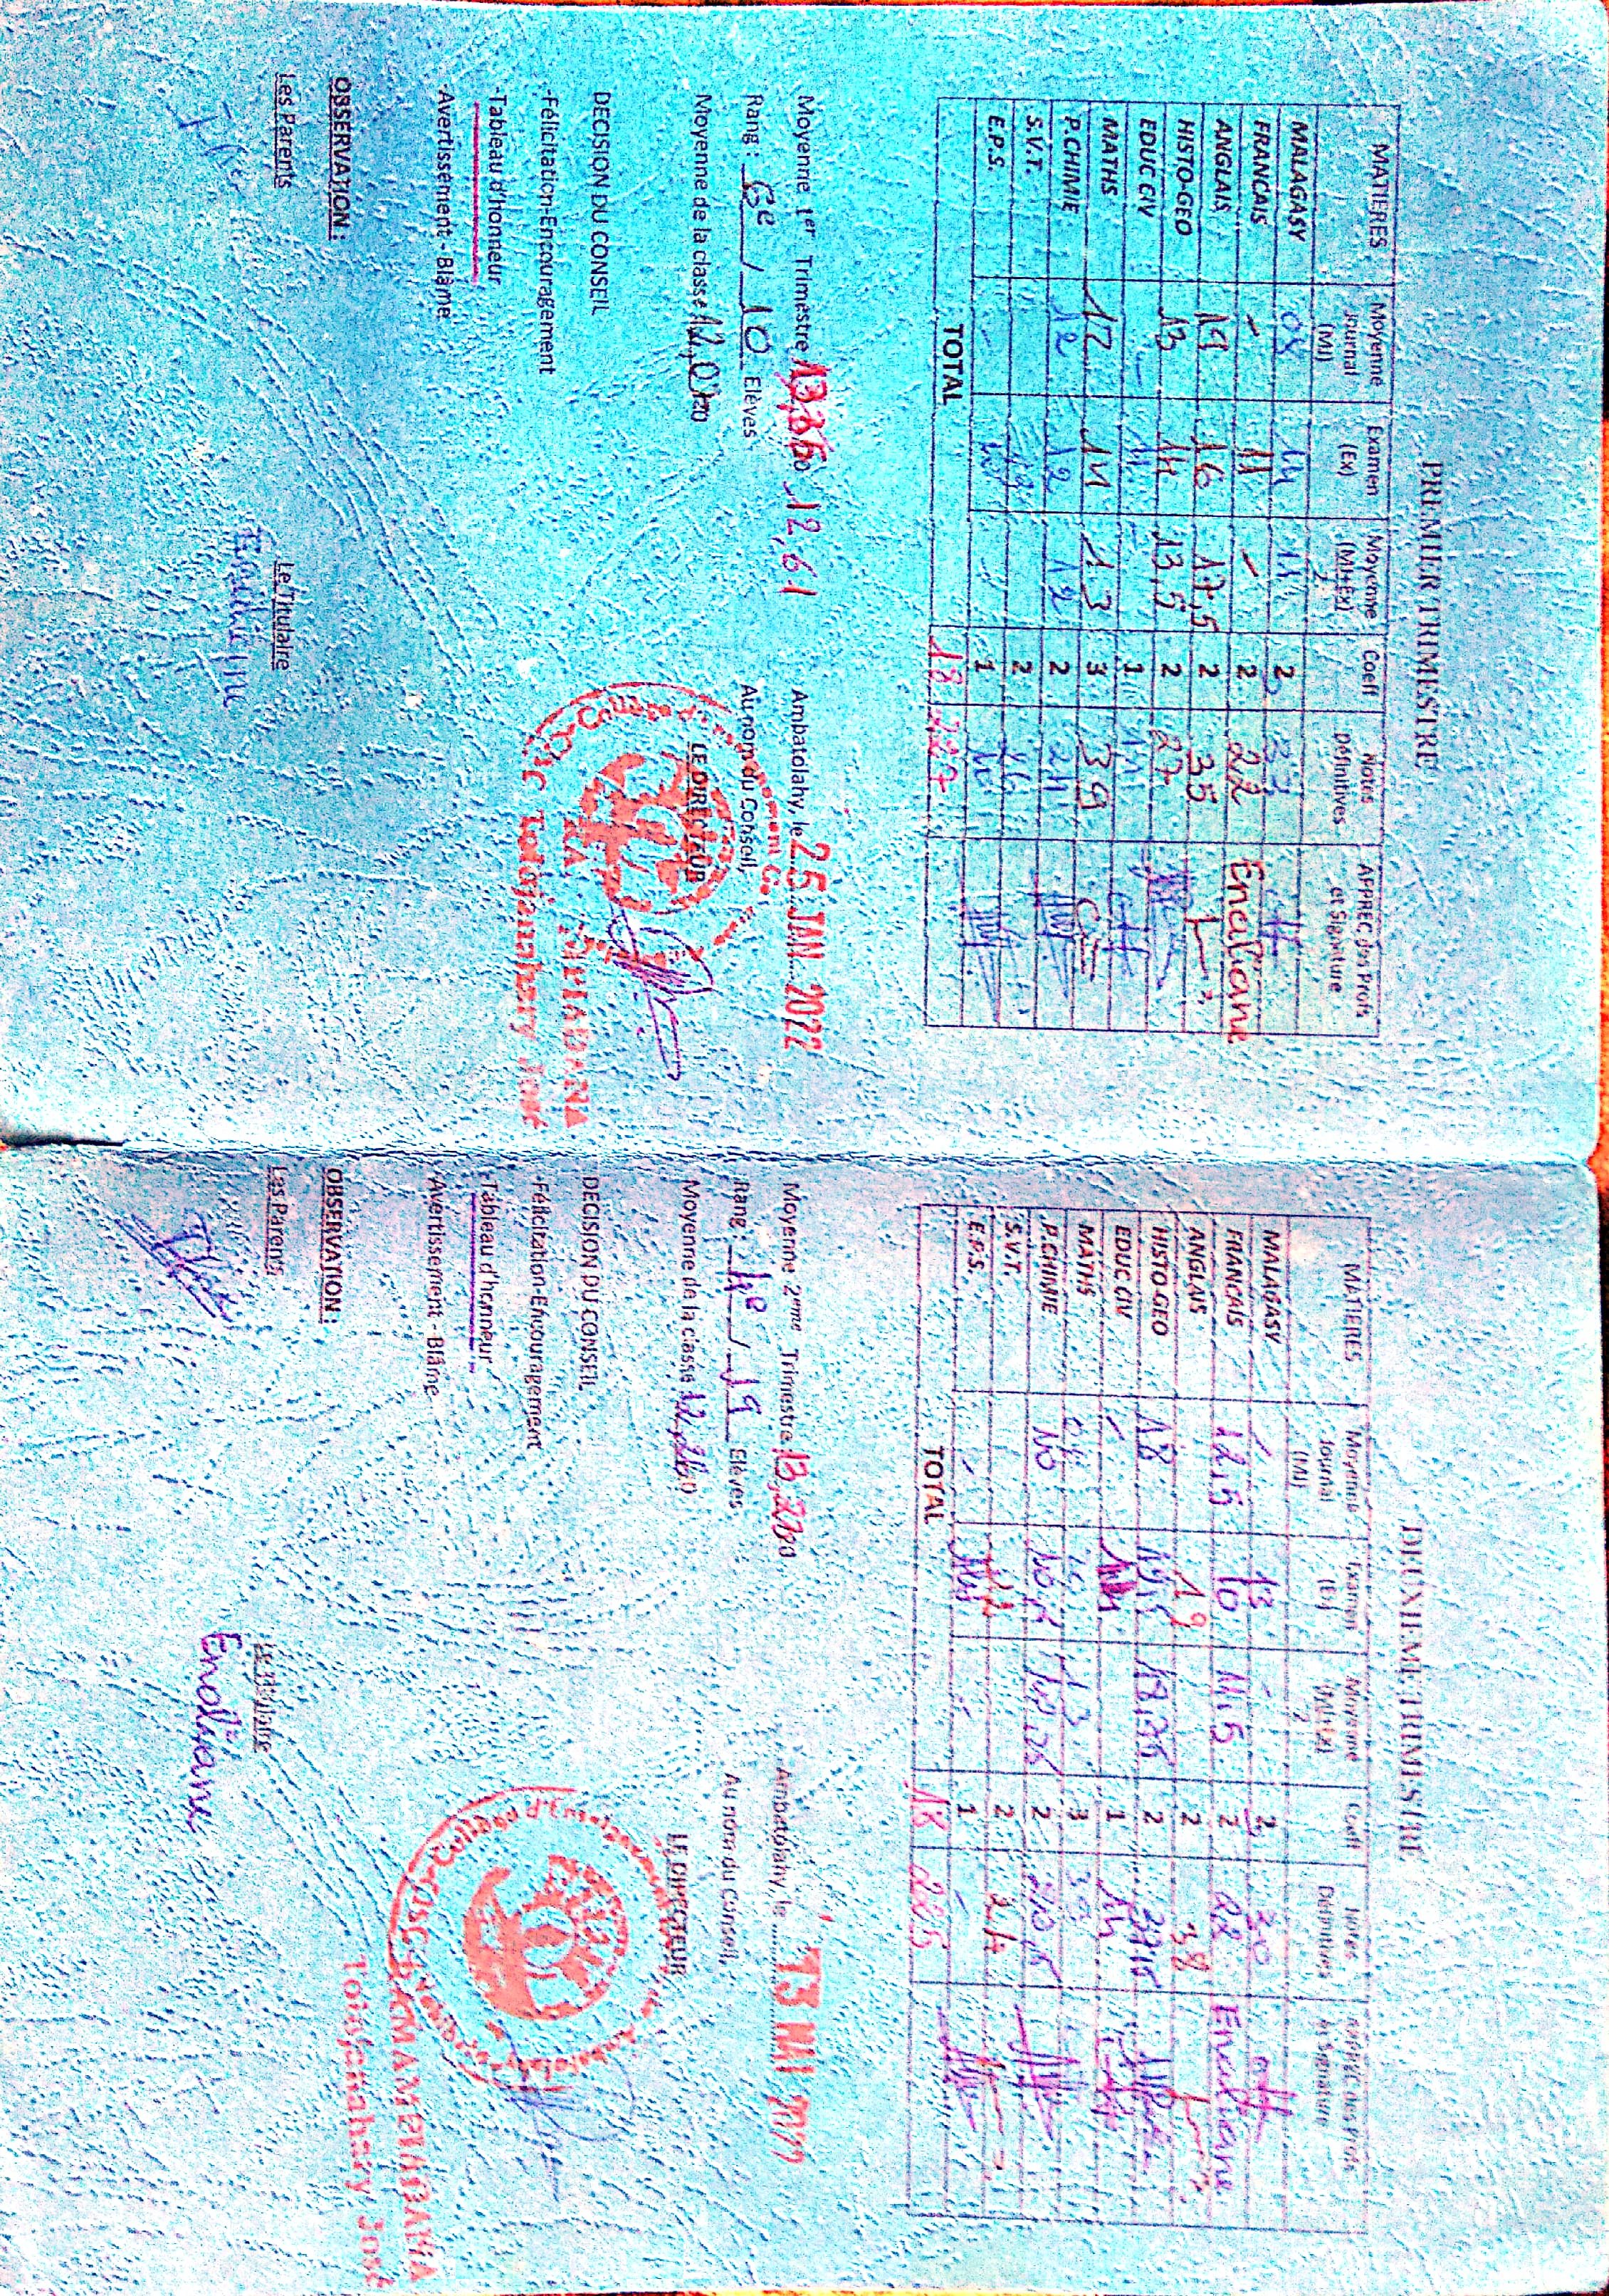 PREMIER TRIMESTRE
MATIERES Moyenne Journal (MJ) Examen (Ex) Moyenne (MJ+Ex) 2 Coeff Notes Définitives APPREC des Profs et Signature
MALAGASY 08 14 11 2
FRANCAIS - 11 - 2 22 Enaliane
ANGLAIS 19 16 17,5 2 35
HISTO-GEO 13 14 13,5 2 27
EDUC CIV - 11 - 1 11
MATHS 12 14 13 3 39
P.CHIMIE 12 12 12 2 24
S.V.T. 13 2 26
E.P.S. - 1
TOTAL 18 227
Moyenne 1er Trimestre 12,61
Rang : 6e / 10 Elèves
Moyenne de la classe : 12,0
Ambatolahy, le 25 JAN 2022
Au nom du Conseil,
LE DIRECTEUR
MPIADANA
Totojanahary José
DECISION DU CONSEIL
-Félicitation-Encouragement
-Tableau d'honneur
-Avertissement - Blâme
OBSERVATION :
Les Parents Le Titulaire
Enaliane
DEUXIEME TRIMESTRE
MATIERES Moyenne Journal (MJ) Examen (Ex) Moyenne (MJ+Ex) 2 Coeff Notes Définitives APPREC des Profs et Signature
MALAGASY - 13 - 2 30
FRANCAIS 12,5 10 11,5 2 22 Enaliane
ANGLAIS 19 2 38
HISTO-GEO 18 19,5 18,75 2 37,5
EDUC CIV - 14 1 14
MATHS 13 3 39
P.CHIMIE 10 10,5 10,25 2 20,5
S.V.T. 12 2 24
E.P.S. - - 1 -
TOTAL 18 225
Moyenne 2eme Trimestre : 13,2
Rang : 4e / 19 Elèves
Moyenne de la classe 12,26
Ambatolahy, le 13 MAI 2022
Au nom du Conseil,
LE DIRECTEUR
RAMAMPIADANA
Totojanahary José
DECISION DU CONSEIL
-Félicitation-Encouragement
-Tableau d'honneur
-Avertissement - Blâme
OBSERVATION :
Les Parents Le Titulaire
Enaliane